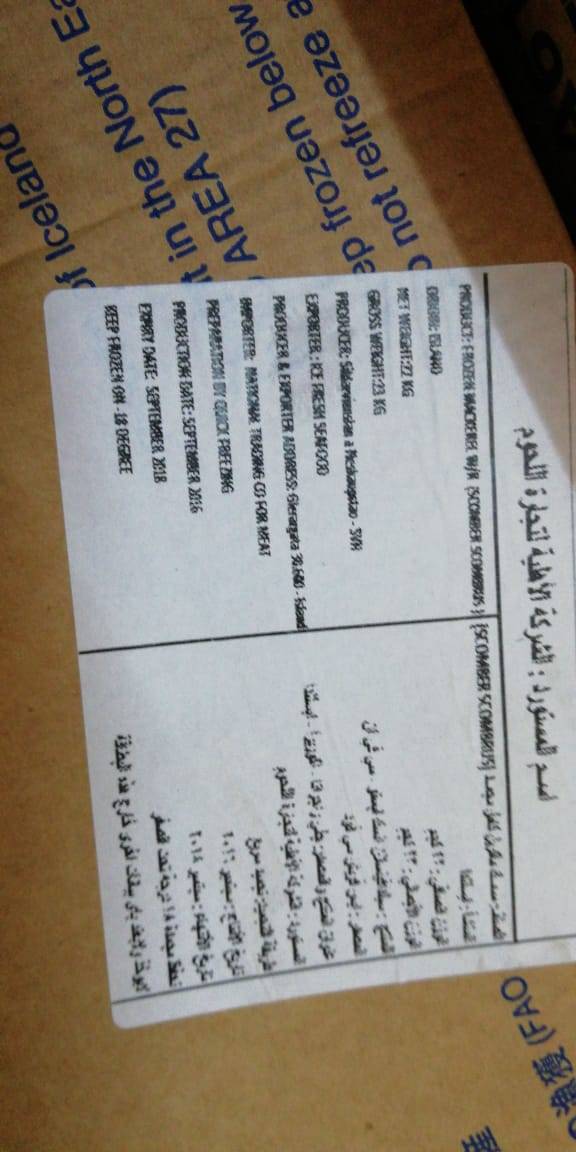 of Iceland
t in the North Ea
AREA 27)
ep frozen below
o not refreeze a
اسم المستورد : الشركة الأهلية لتجارة اللحوم
PRODUCT: FROZEN MACKEREL W/R (SCOMBER SCOMBRUS)
ORIGIN: ISLAND
NET WEIGHT:22 KG
GROSS WEIGHT:23 KG
PRODUCER: Sildarvinnslan a Neskaupstao - SVN
EXPORTER : ICE FRESH SEAFOOD
PRODUCER & EXPORTER ADDRESS: Glerargata 30.600 - Island
IMPORTER: NATIONAL TRADING CO FOR MEAT
PREPARATION BY QUICK FREEZING
PRODUCTION DATE: SEPTEMBER 2016
EXPIRY DATE: SEPTEMBER 2018
KEEP FROZEN ON -18 DEGREE
الصنف: سمك ماكريل كامل مجمد (SCOMBER SCOMBRUS)
المنشأ : ايسلندا
الوزن الصافي : ٢٢ كجم
الوزن الإجمالي : ٢٣ كجم
المستورد : الشركة الأهلية لتجارة اللحوم
طريقة التحضير: تجميد سريع
تاريخ الإنتاج : سبتمبر ٢٠١٦
تاريخ الانتهاء : سبتمبر ٢٠١٨
تحفظ مجمدة ١٨ درجة تحت الصفر
(FAO